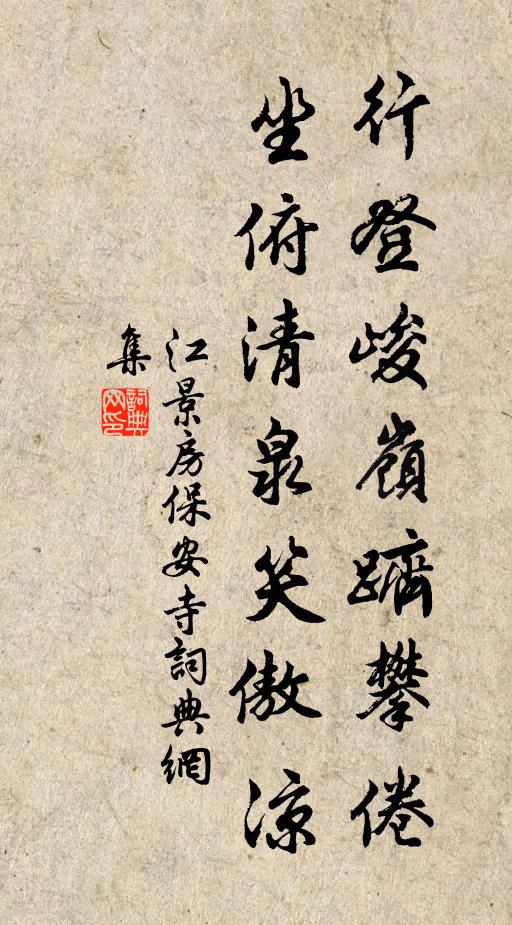 行登峻嶺躋攀倦
坐俯清泉笑傲涼
江景房保安寺詞典網
集
詞典網印